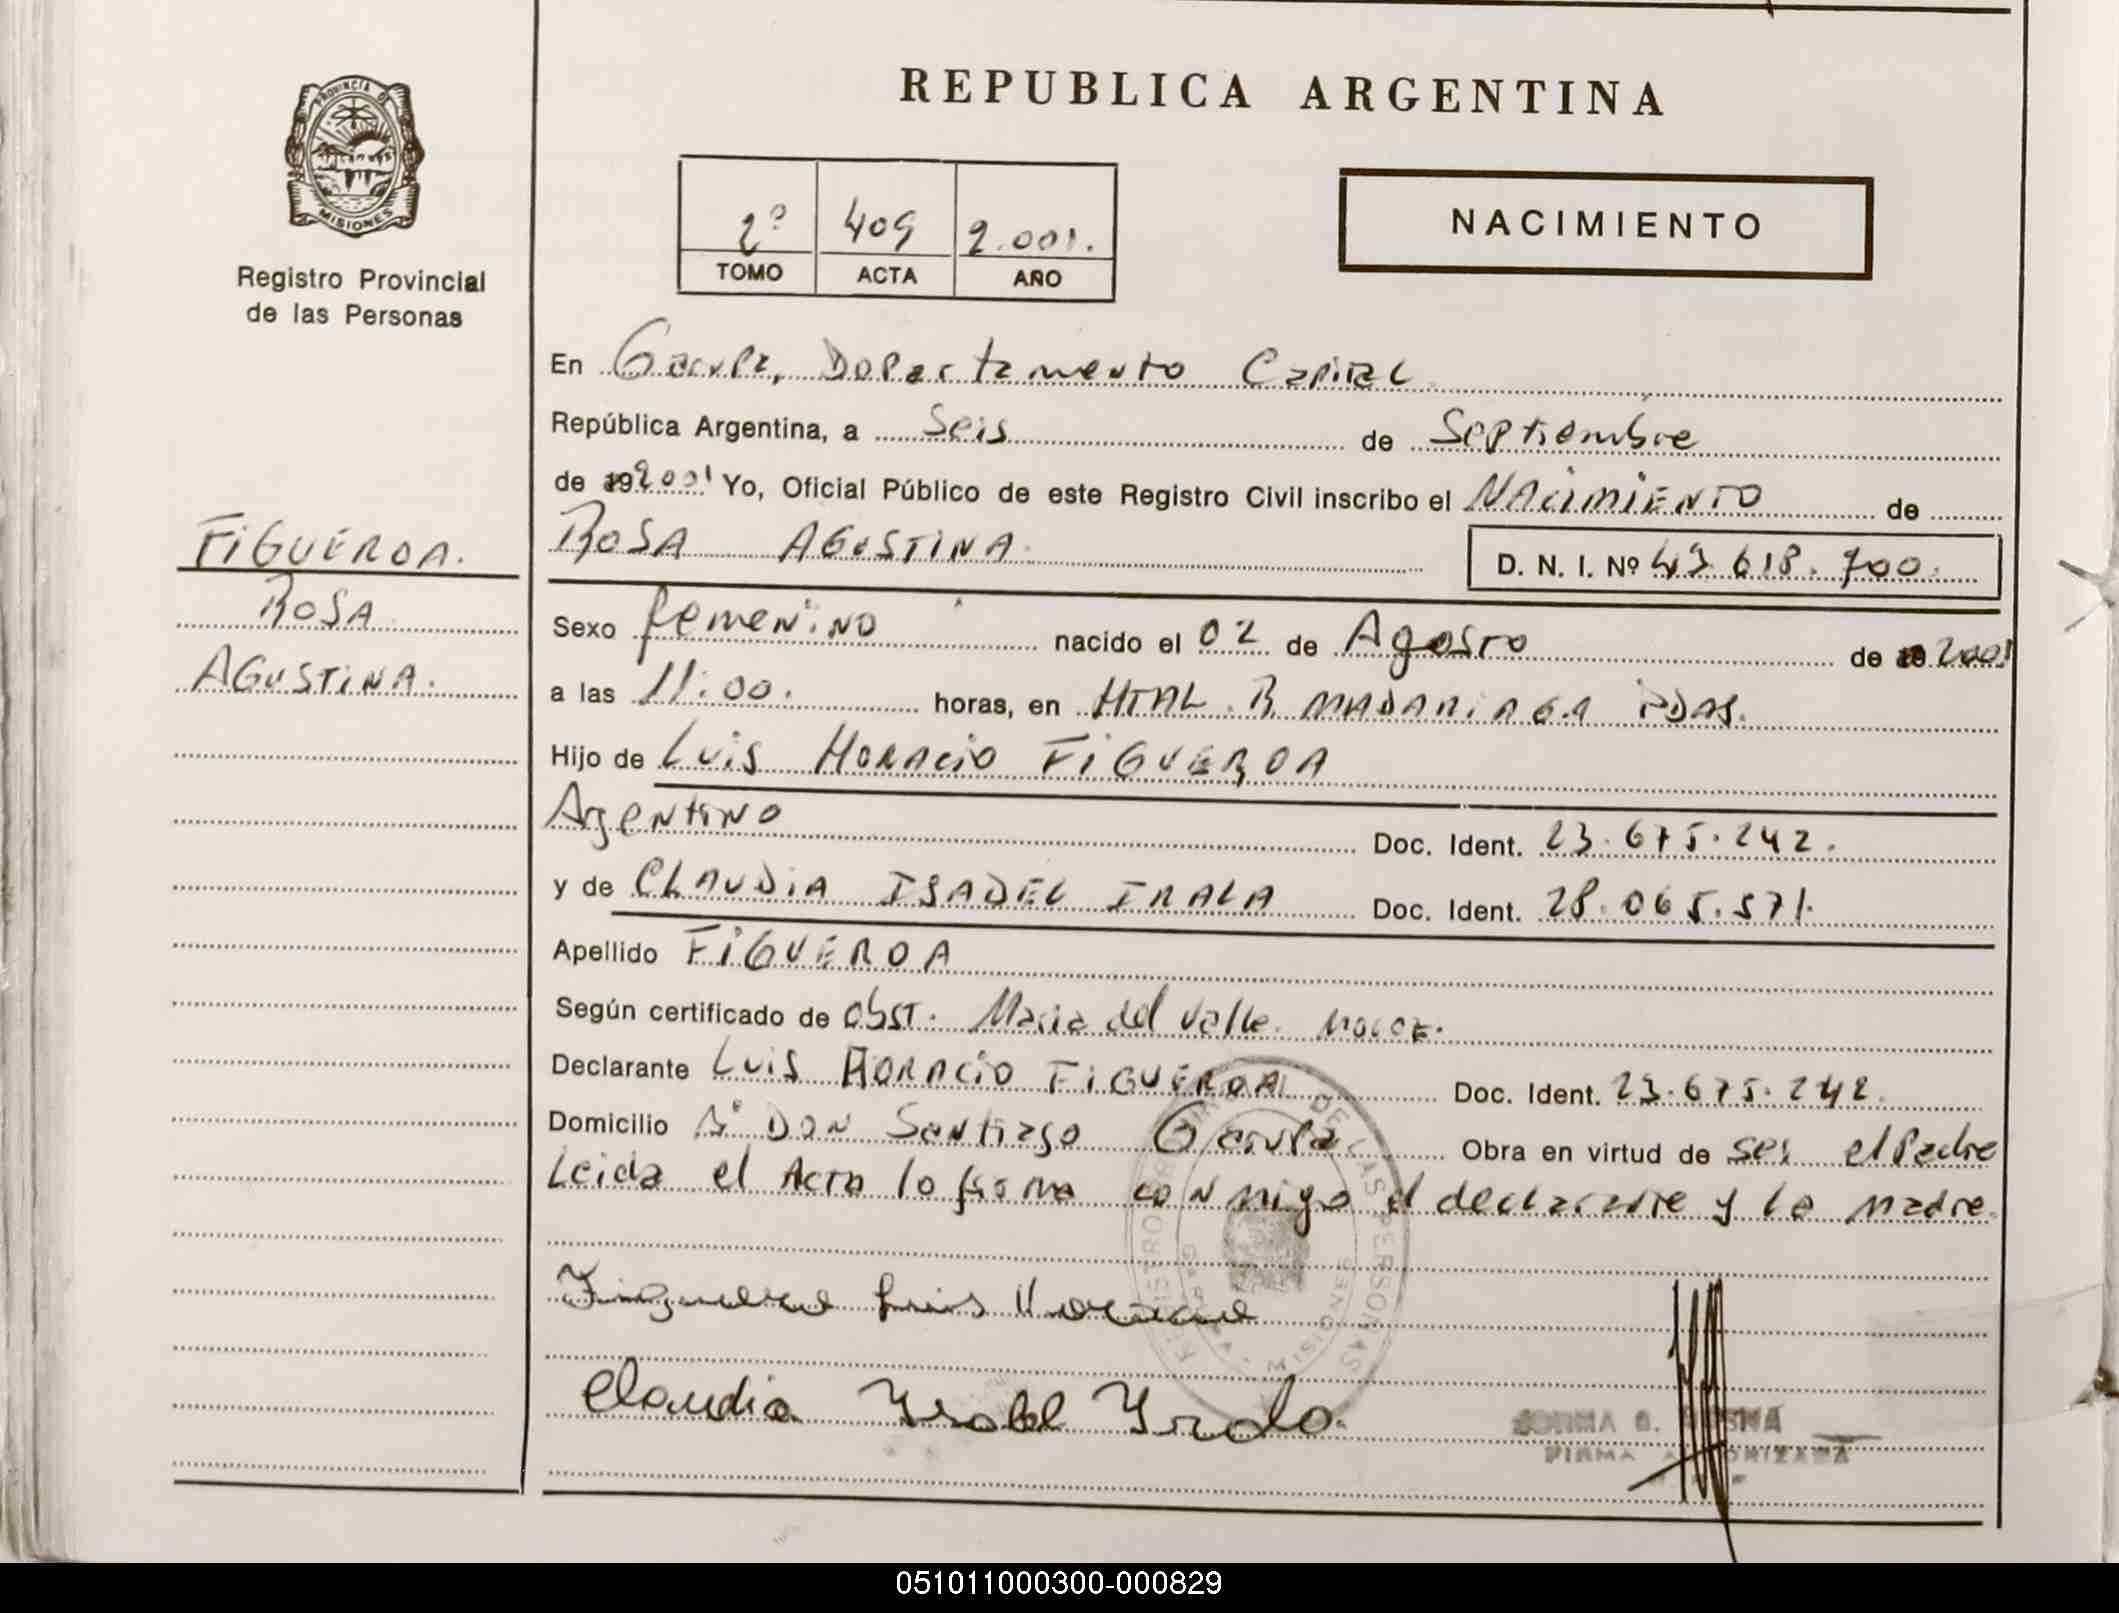 PROVINCIA DE
MISIONES
Registro Provincial
de las Personas
REPUBLICA ARGENTINA
2º 409 2.001.
TOMO ACTA AÑO
NACIMIENTO
En Garupa, Departamento Capital
República Argentina, a Seis de Septiembre
de 192001 Yo, Oficial Público de este Registro Civil inscribo el NACIMIENTO de
ROSA AGUSTINA. D. N. I. Nº 43.618.700.
FIGUEROA.
ROSA
AGUSTINA.
Sexo femenino nacido el 02 de Agosto de 19 2001
a las 11:00. horas, en HTAL. R. MADARIAGA PDAS.
Hijo de LUIS HORACIO FIGUEROA
Argentino Doc. Ident. 23.675.242.
y de CLAUDIA ISABEL IRALA Doc. Ident. 28.065.571.
Apellido FIGUEROA
Según certificado de obst. Maria del Valle
Declarante LUIS HORACIO FIGUEROA Doc. Ident. 23.675.242
Domicilio Bº DON Santiago Garupa Obra en virtud de ser el Padre
Leida el Acta lo firma conmigo el declarante y la madre.
REGISTRO PROVINCIAL DE LAS PERSONAS
GARUPA - MISIONES
Figueroa Luis Horacio
Claudia Isabel Irala.
FIRMA AUTORIZADA
051011000300-000829